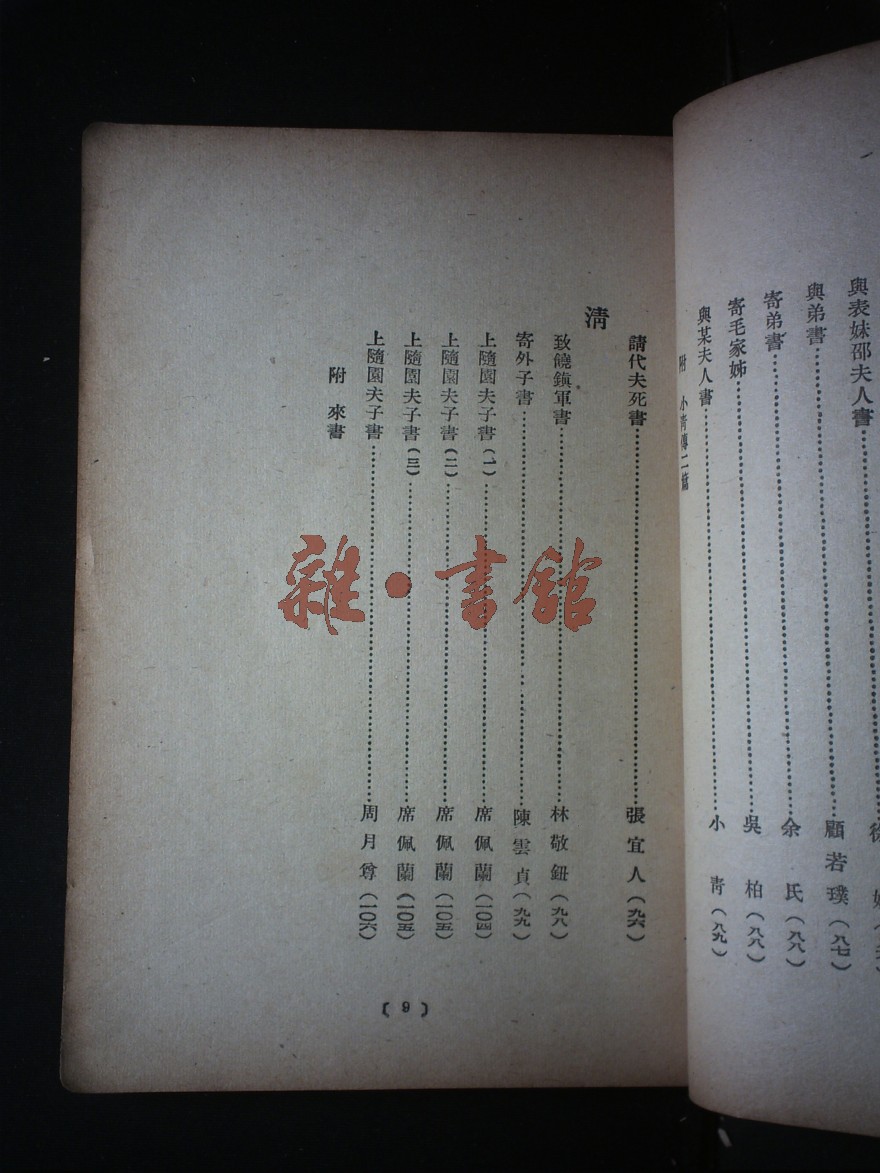 與表妹邵夫人書
與弟書 顧若璞(八七)
寄弟書 余氏(八八)
寄毛家姊 吳柏(八八)
與某夫人書 小青(八九)
附 小青傳二篇
請代夫死書 張宜人(九六)
清
致饒鎭軍書 林敬鈕(九八)
寄外子書 陳雲貞(九九)
上隨園夫子書(一) 席佩蘭(一〇四)
上隨園夫子書(二) 席佩蘭(一〇五)
上隨園夫子書(三) 席佩蘭(一〇五)
上隨園夫子書 周月尊(一〇六)
附 來書
〔9〕
雜·書館